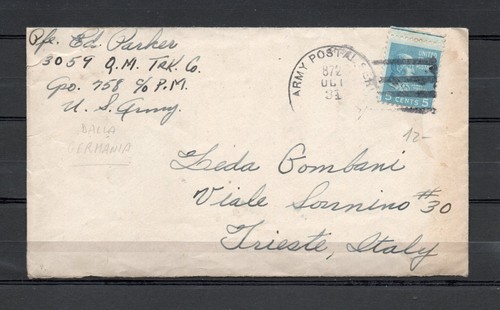 Pfc. Ed. Parker
3059 Q.M. TRK. Co.
Apo. 758 c/o P.M.
U. S. Army.
DALLA
GERMANIA
ARMY POSTAL SER
872
OCT
31
UNITED
5 CENTS 5
12-
Leda Combani
Viale Sonnino #30
Trieste, Italy